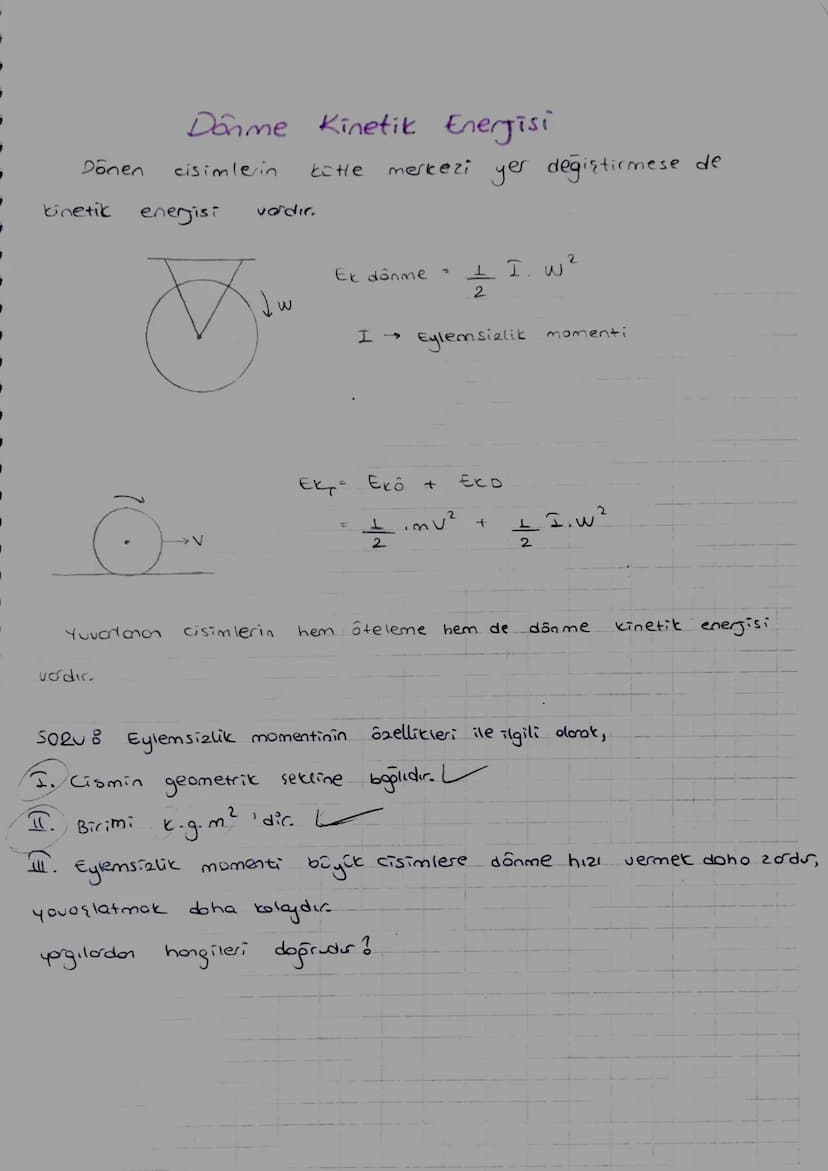 Dönme Kinetik Energisi
Dönen cisimlerin kütle merkezi yer değiştirmese de
kinetik energisi vardır.
Ek dönme = 1/2 I. W²
W
I → Eylemsizlik momenti
EkT = EKÖ + EKD
= 1/2 .mV² + 1/2 I.W²
V
Yuvarlanan cisimlerin hem öteleme hem de dönme kinetik energisi
vardır.
SORU: Eylemsizlik momentinin özellikleri ile ilgili olarak,
I. Cismin geometrik şekline bağlıdır. ✓
II. Birimi k.g.m² 'dir. ✓
III. Eylemsizlik momenti büyük cisimlere dönme hızı vermek daha zordur,
yavaşlatmak daha kolaydır.
yargılardan hangileri doğrudur?